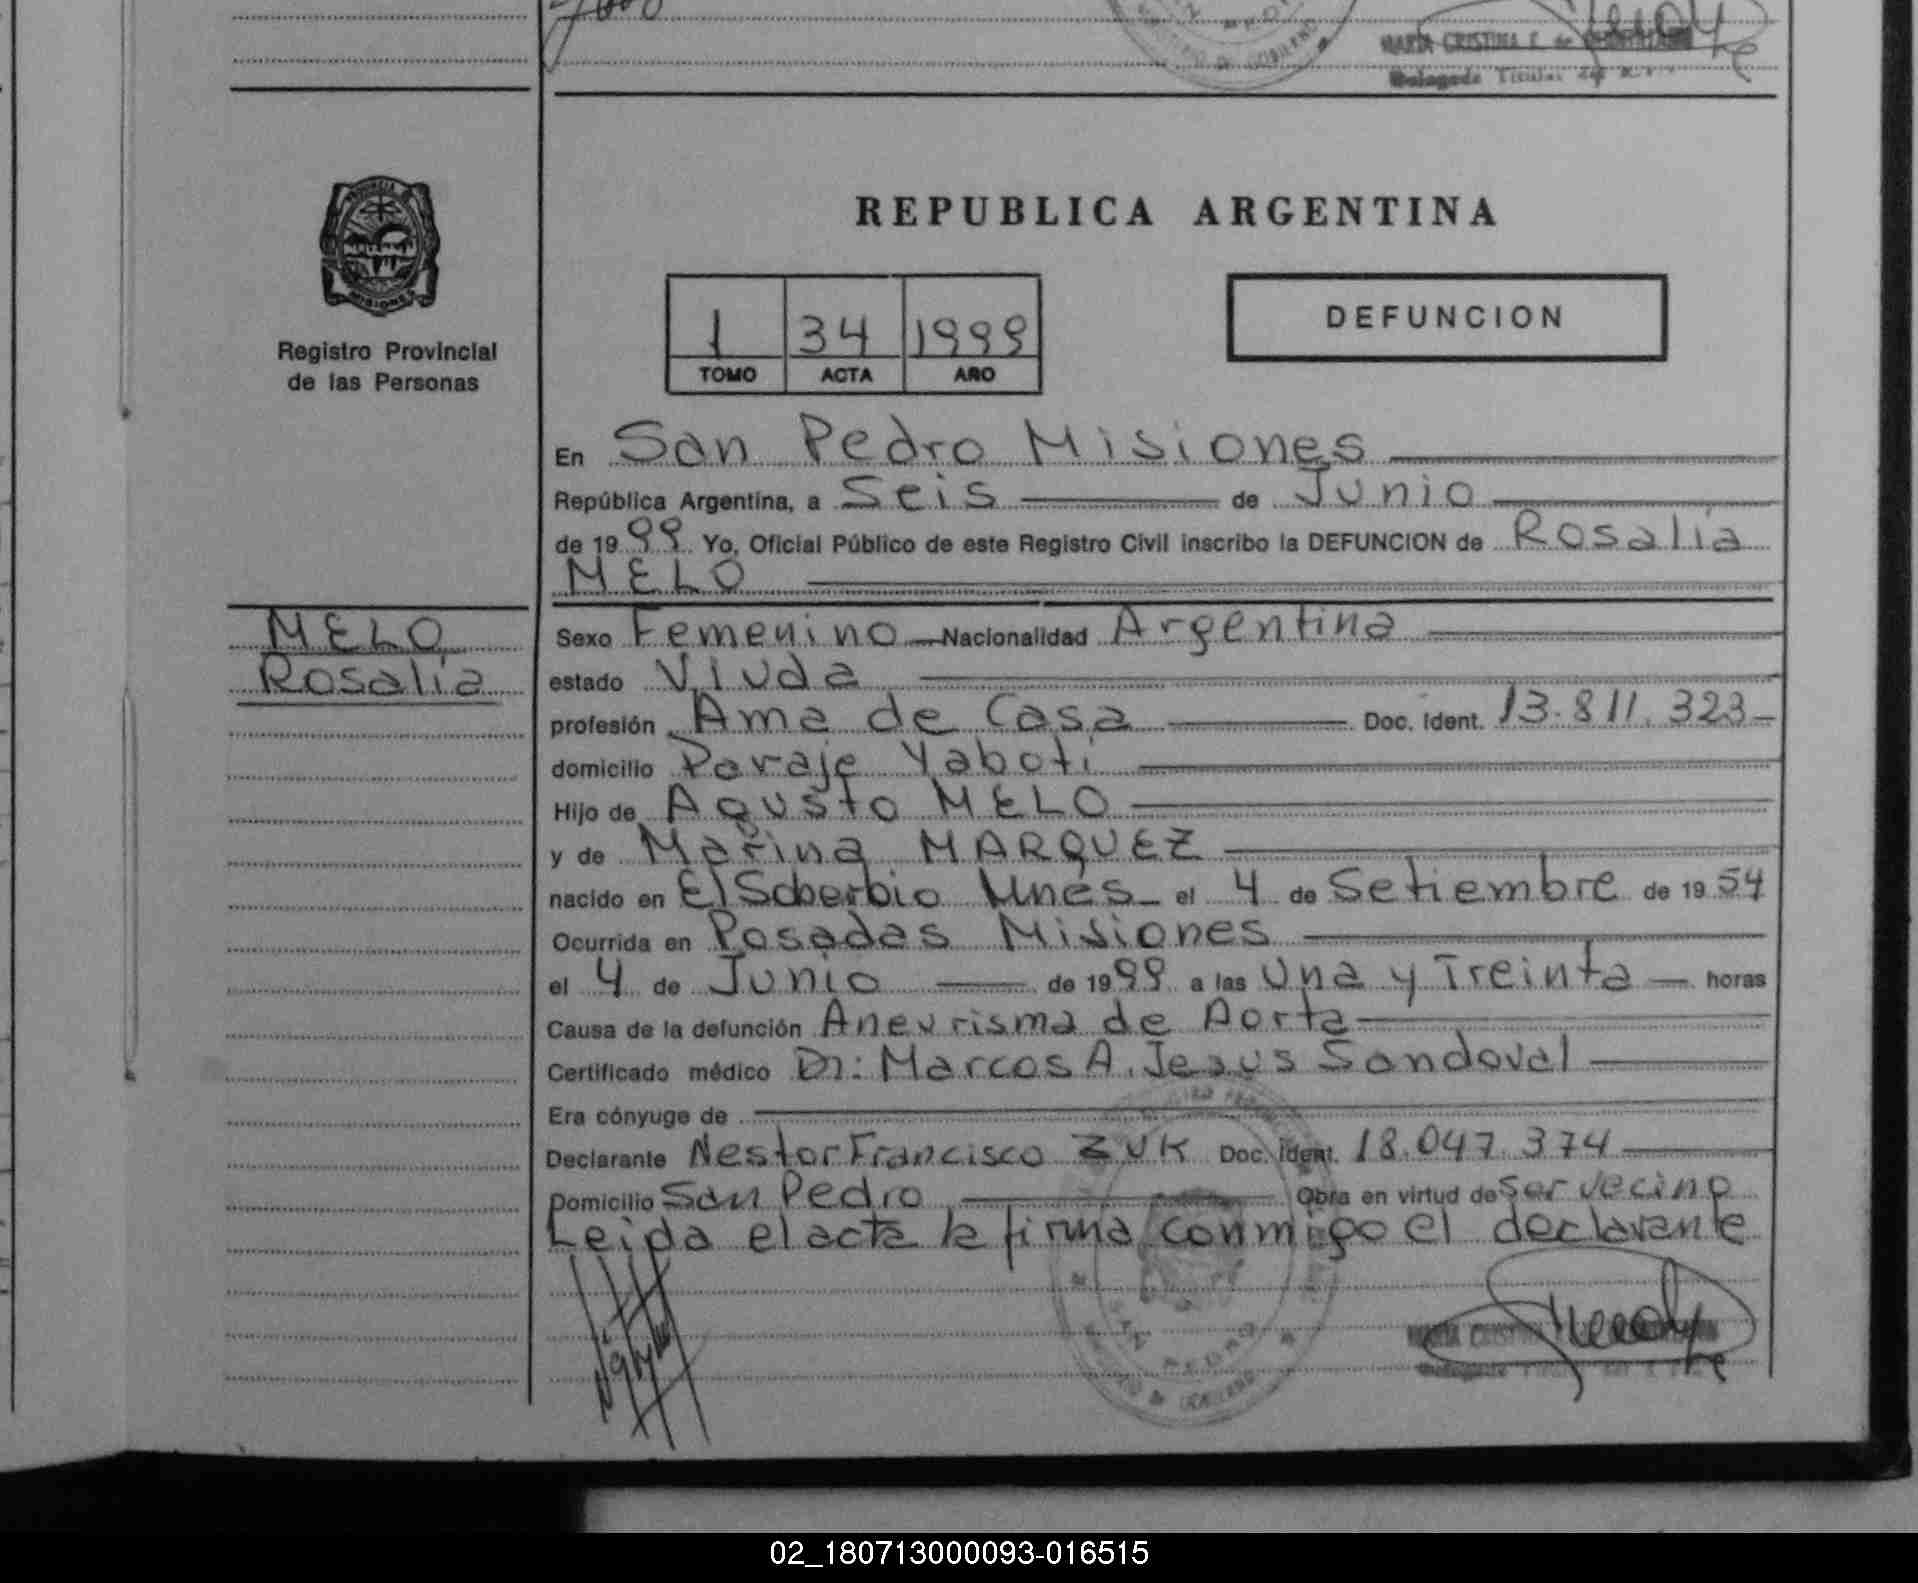 MARIA CRISTINA
Delegada Titular del
PROVINCIA DE
MISIONES
Registro Provincial
de las Personas
REPUBLICA ARGENTINA
1 34 1999
TOMO ACTA AÑO
DEFUNCION
En San Pedro Misiones
República Argentina, a Seis de Junio
de 1999 Yo, Oficial Público de este Registro Civil inscribo la DEFUNCION de Rosalia
MELO
MELO
Rosalia
Sexo Femenino Nacionalidad Argentina
estado Viuda
profesión Ama de Casa Doc. Ident. 13.811.323
domicilio Paraje Yaboti
Hijo de Agusto MELO
y de Marina MARQUEZ
nacido en El Soberbio Mnes el 4 de Setiembre de 1954
Ocurrida en Posadas Misiones
el 4 de Junio de 1999 a las Una y Treinta horas
Causa de la defunción Aneurisma de Aorta
Certificado médico Dr: Marcos A. Jesus Sandoval
Era cónyuge de
Declarante Nestor Francisco ZUK Doc. Ident. 18.047.374
Domicilio San Pedro Obra en virtud de Ser vecino
Leida el acta la firma conmigo el declarante
SAN PEDRO
MARIA CRISTINA
Delegada
02_180713000093-016515